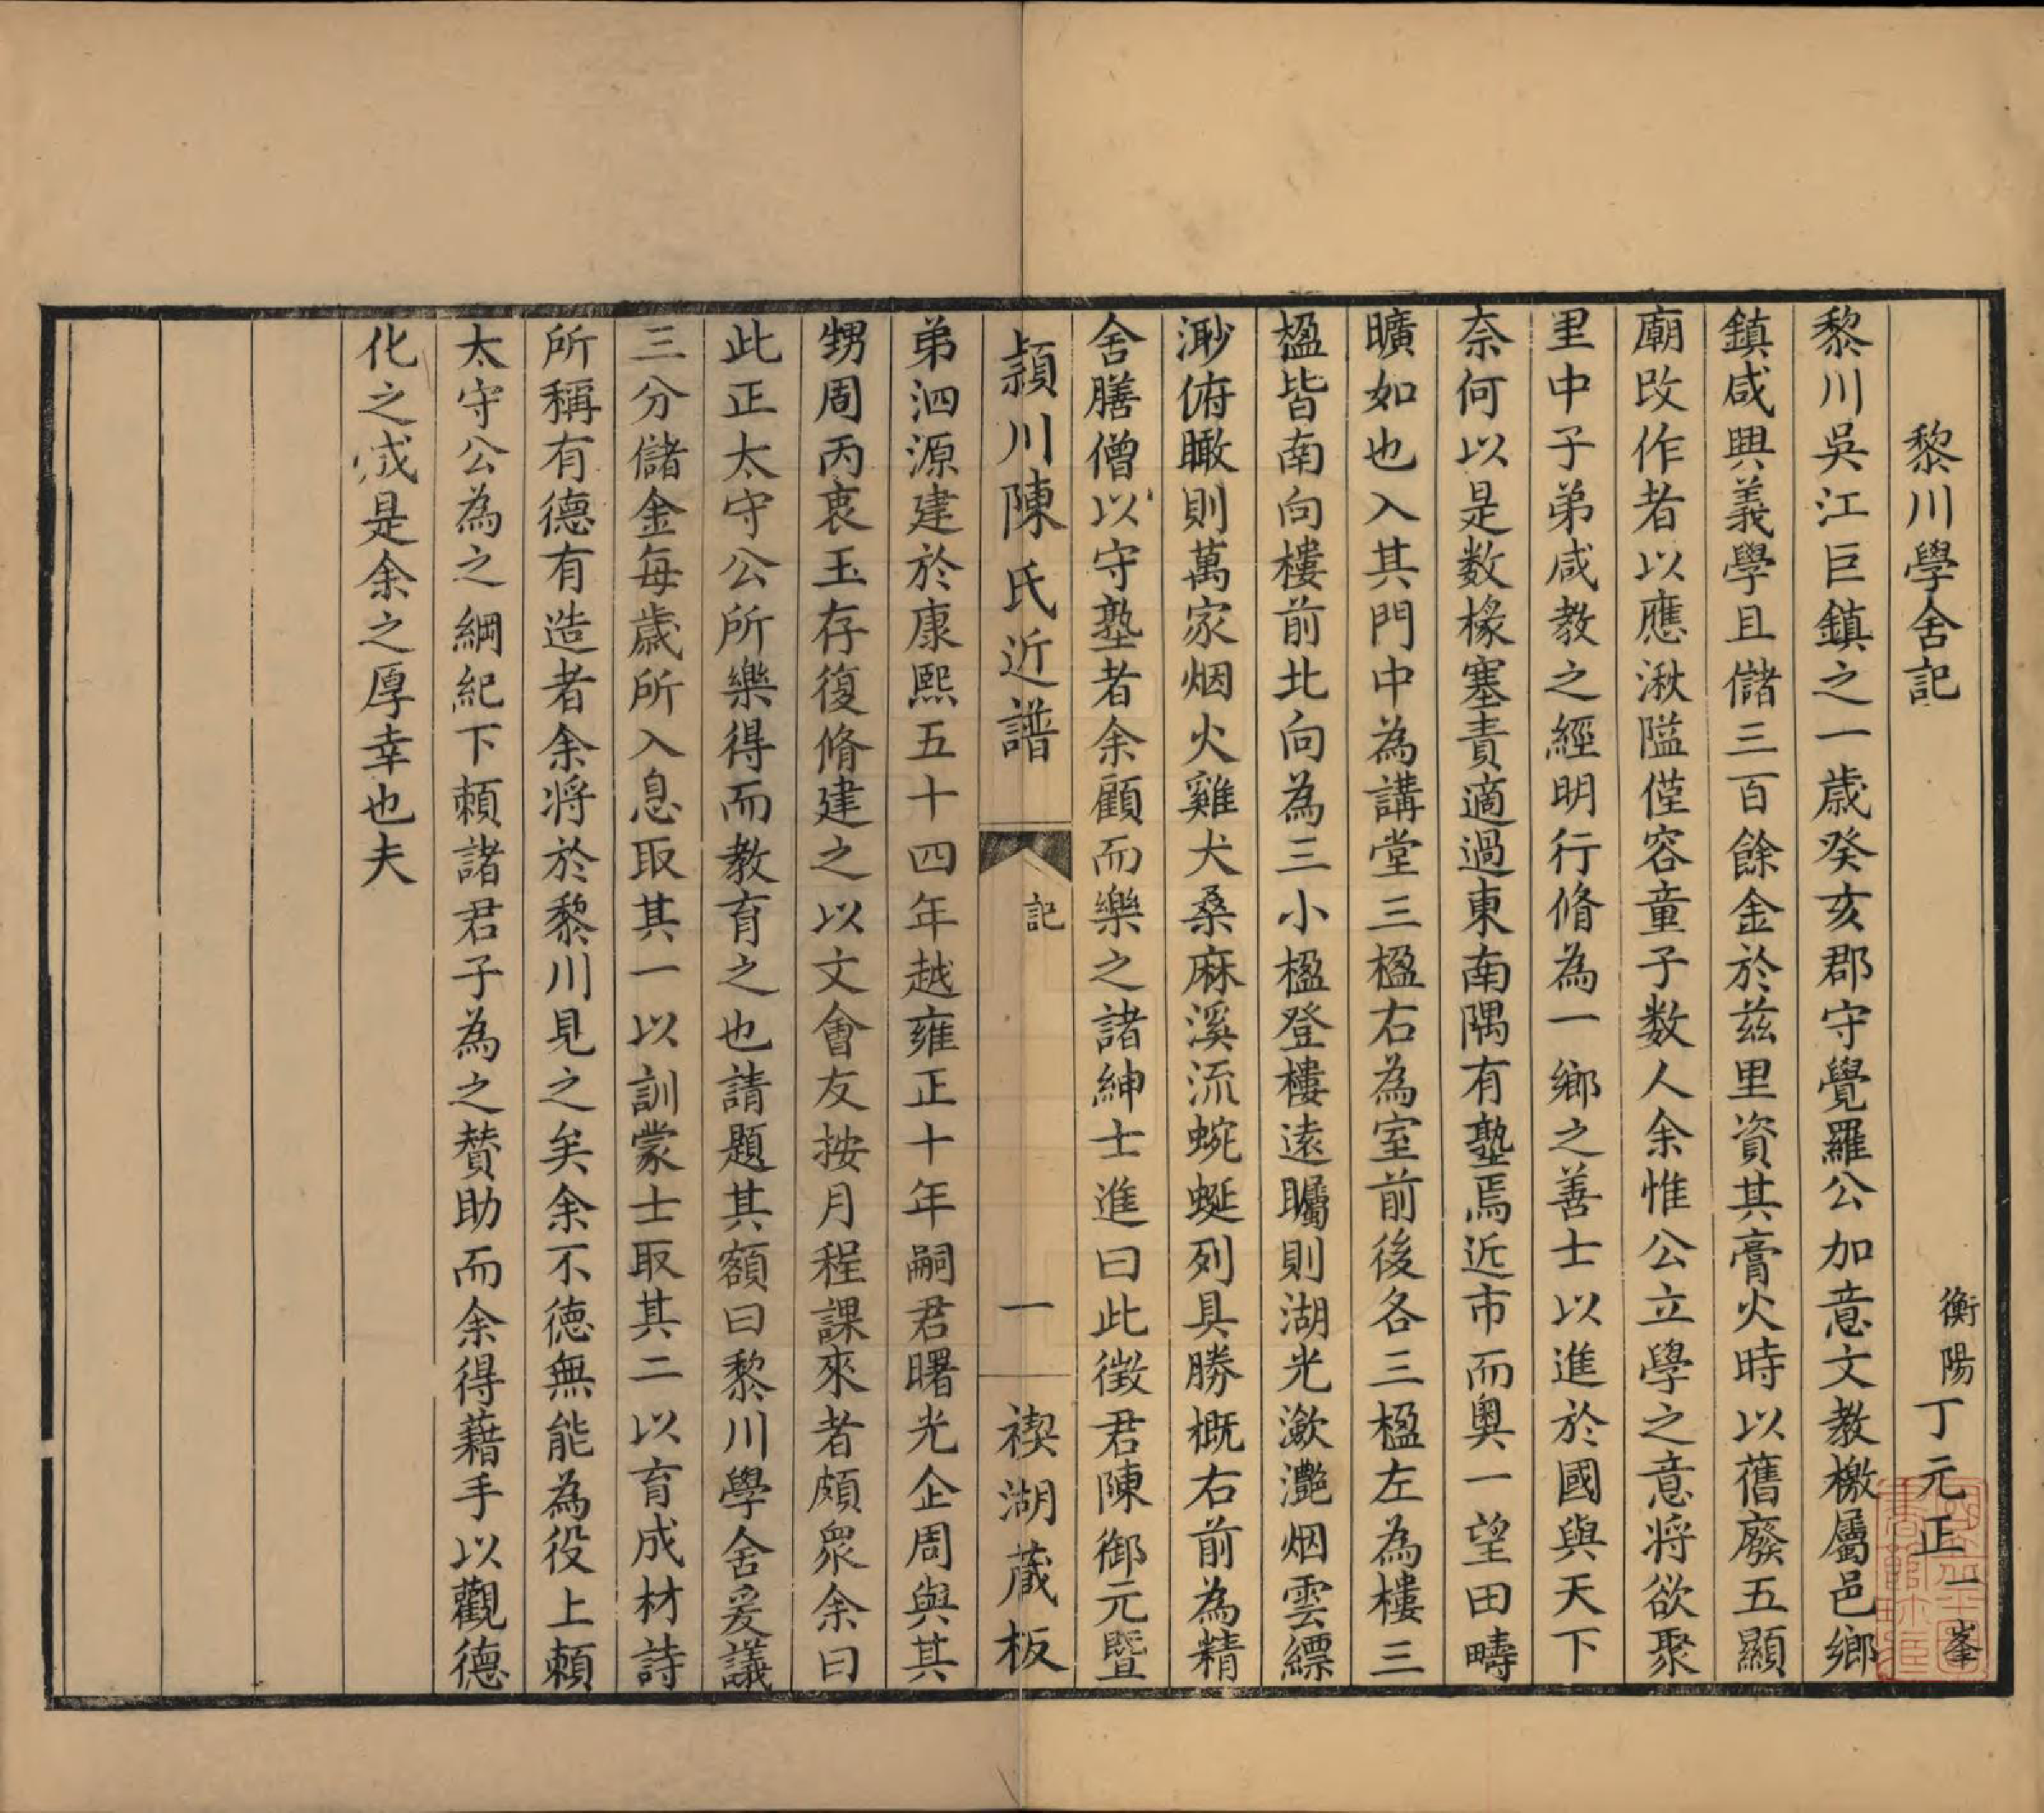 黎川學舍記
衡陽丁元正一峯
黎川吳江巨鎮之一歲癸亥郡守覺羅公加意文教檄屬邑鄉
鎮咸興義學且儲三百餘金於兹里資其膏火時以舊廢五顯
廟改作者以應湫隘僅容童子数人余惟公立學之意将欲聚
里中子弟咸教之經明行脩為一鄉之善士以進於國與天下
奈何以是数椽塞責適過東南隅有塾焉近市而奥一望田疇
曠如也入其門中為講堂三楹右為室前後各三楹左為樓三
楹皆南向樓前北向為三小楹登樓遠矚則湖光瀲灔烟雲縹
渺俯瞰則萬家烟火雞犬桑麻溪流蜿蜒列具勝概右前為精
舍膳僧以守塾者余顧而樂之諸紳士進曰此徴君陳御元暨
潁川陳氏近譜
記
一
禊湖蔵板
弟泗源建於康熙五十四年越雍正十年嗣君曙光企周與其
甥周丙衷玉存復脩建之以文會友按月程課來者頗衆余曰
此正太守公所樂得而教育之也請題其額曰黎川學舍爰議
三分儲金每歲所入息取其一以訓蒙士取其二以育成材詩
所稱有德有造者余将於黎川見之矣余不徳無能為役上頼
太守公為之綱紀下頼諸君子為之賛助而余得藉手以觀德
化之成是余之厚幸也夫